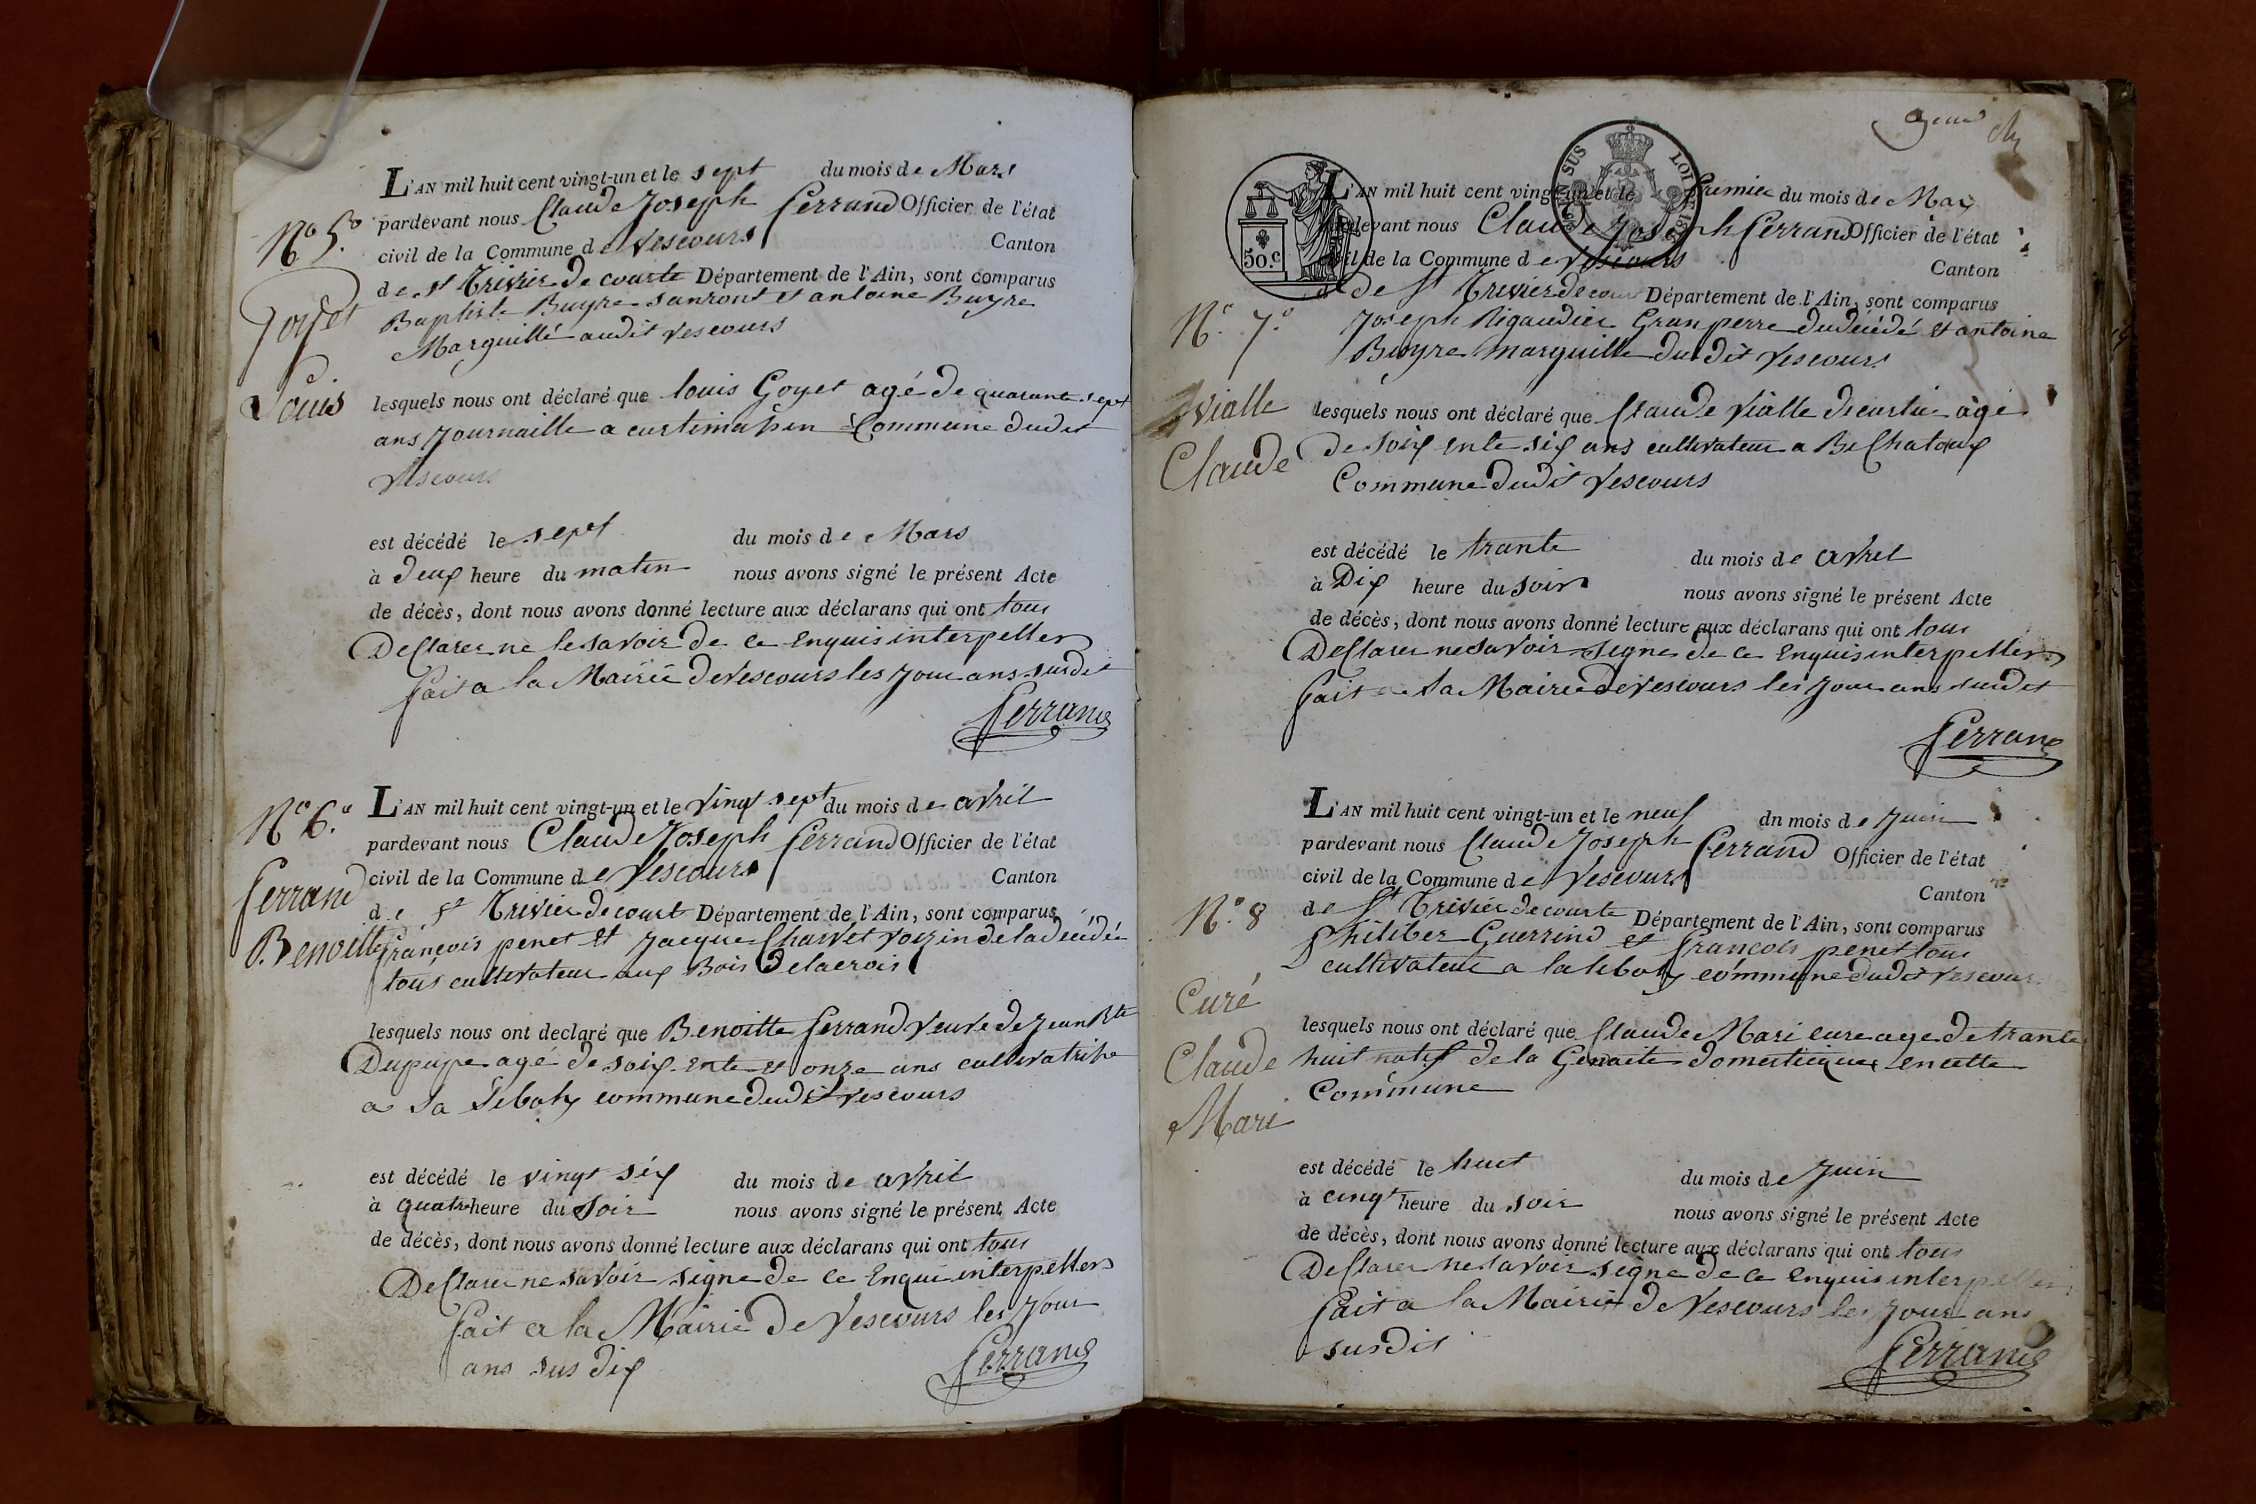 L'AN mil huit cent vingt-un et le sept du mois de Mars
pardevant nous Claude Joseph ferrand Officier de l'état
civil de la Commune de Vescours Canton
de st Trivier de courte Département de l'Ain, sont comparus
Baptiste Buyre et antoine Buyre
Marguillé audit vescours
No 5.o
Goyet
Louis
lesquels nous ont déclaré que louis Goyet agé de quarante sept
ans journaille a commune dudit
Vescours
est décédé le sept du mois de Mars
à deux heure du matin nous avons signé le présent Acte
de décès, dont nous avons donné lecture aux déclarans qui ont tous
Declarer ne le savoir de ce Enquis interpeller
fait a la Mairie de vescours les jour ans susdit
ferrand
L'AN mil huit cent vingt-un et le vingt sept du mois de avril
pardevant nous Claude Joseph ferrand Officier de l'état
civil de la Commune de Vescours Canton
de st Trivier de court Département de l'Ain, sont comparus
françois penet et jacque Charvet voizin de la décédée
tous cultivateur aux Bois Delacroix
No 6.o
ferrand
Benoitte
lesquels nous ont declaré que Benoitte ferrand veuve de jean Bte
Dupupe agé de soix ente et onze ans cultivatrise
a La commune dudit vescours
est décédé le vingt six du mois de avril
à quatre heure du soir nous avons signé le présent Acte
de décès, dont nous avons donné lecture aux déclarans qui ont tous
Declarer ne savoir signe de ce Enqui interpeller
fait a la Mairie de Vescours les jour
ans sus dix
ferrand
50.c
L'AN mil huit cent vingt-un et le premier du mois de Mai
pardevant nous Claude Joseph ferrand Officier de l'état
civil de la Commune de Vescours Canton
de de St Trivier de cour Département de l'Ain, sont comparus
Joseph Rigaudier Gran perre dudécédé et antoine
Buyre marguille dudit Vescours
No 7.o
Vialle
Claude
lesquels nous ont déclaré que Claude Vialle agé
de soix ente six ans cultivateur a BeChataux
Commune dudit Vescours
est décédé le trante du mois de avrel
à Dix heure du soir nous avons signé le présent Acte
de décès, dont nous avons donné lecture aux déclarans qui ont tous
Declarer ne savoir signe de ce Enquis interpeller
fait a La Mairie de vescours les jour ans susdit
ferrand
L'AN mil huit cent vingt-un et le neuf dn mois de juin
pardevant nous Claude Joseph ferrand Officier de l'état
civil de la Commune de Vescours Canton
de St Trivier de courte Département de l'Ain, sont comparus
Philiber Guerrind et françois penet tous
cultivateur a commune dudit vescour
No 8
Curé
Claude
Mari
lesquels nous ont déclaré que Claude Mari cure age de trante
huit natif de la Genaete domesticque encette
Commune
est décédé le huit du mois de juin
à cinqt heure du soir nous avons signé le présent Acte
de décès, dont nous avons donné lecture aux déclarans qui ont tous
Declarer ne savoir signe de ce Enquis interpeller
fait a la Mairie de Vescours les jour ans
susdit
ferrand